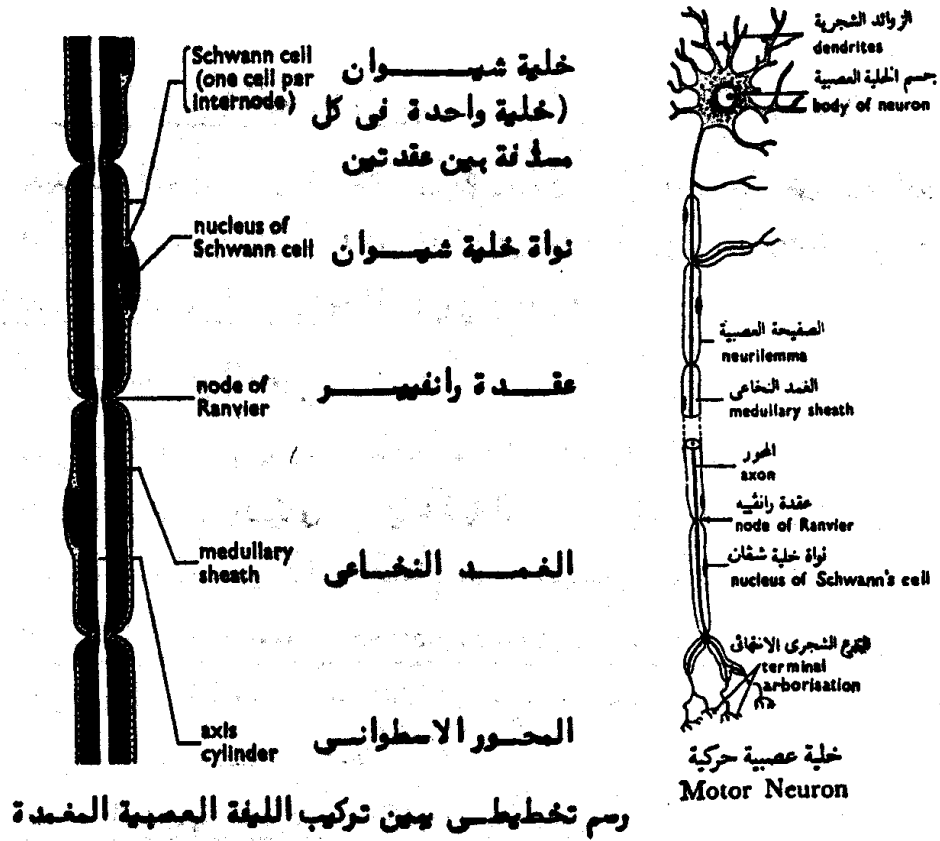 Schwann cell
(one cell per
internode)
خلية شيـــــوان
(خلية واحدة فى كل
مسافة بين عقدتين
nucleus of
Schwann cell
نواة خلية شيـــوان
node of
Ranvier
عقـــدة رانفييـــر
medullary
sheath
الغمـــد النخـاعى
axis
cylinder
المحـــور الاسطوانـــى
رسم تخطيطـى يبين تركيب الليفة العصبية المغمدة
الزوائد الشجرية
dendrites
جسم الخلية العصبية
body of neuron
الصفيحة العصبية
neurilemma
الغمد النخاعى
medullary sheath
المحور
axon
عقدة رانڤييه
node of Ranvier
نواة خلية شڤان
nucleus of Schwann's cell
الشجرى الانتهائى
terminal
arborisation
خلية عصبية حركية
Motor Neuron